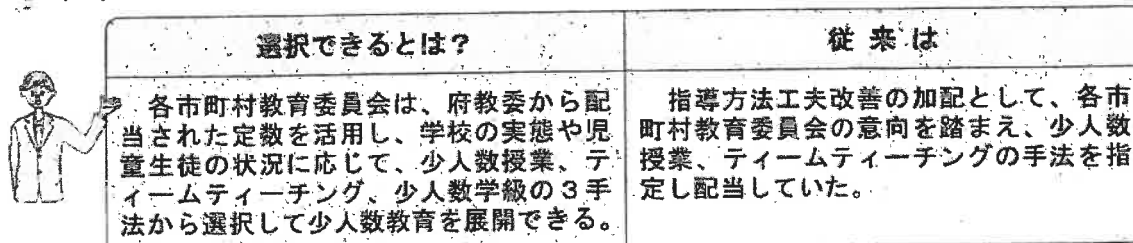 選択できるとは?
各市町村教育委員会は、府教委から配
当された定数を活用し、学校の実態や児
童生徒の状況に応じて、少人数授業、テ
ィームティーチング、少人数学級の3手
法から選択して少人数教育を展開できる。
従来は
指導方法工夫改善の加配として、各市
町村教育委員会の意向を踏まえ、少人数
授業、ティームティーチングの手法を指
定し配当していた。